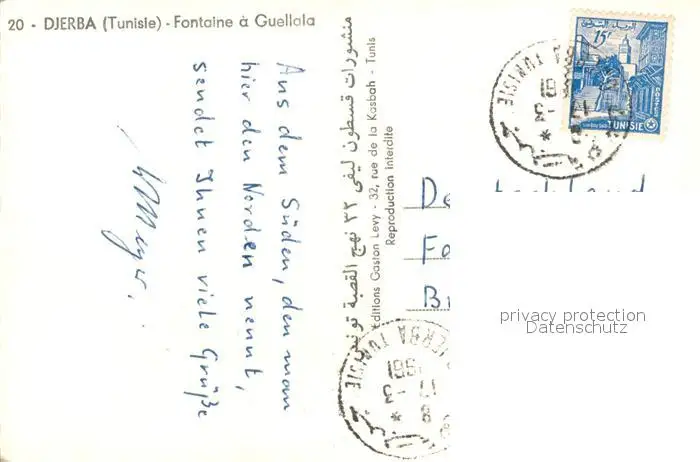 20 - DJERBA (Tunisie) - Fontaine à Guellala
Aus dem Süden, den man
hier den Norden nennt,
sendet Ihnen viele Grüße
منشورات قسطون ليفي ٣٢ نهج القصبة تونس
Editions Gaston Levy - 32, rue de la Kasbah - Tunis
Reproduction interdite
15F
TUNISIE
TUNISIE
De
Fo
privacy protection
Datenschutz
DJERBA TUNISIE
1961